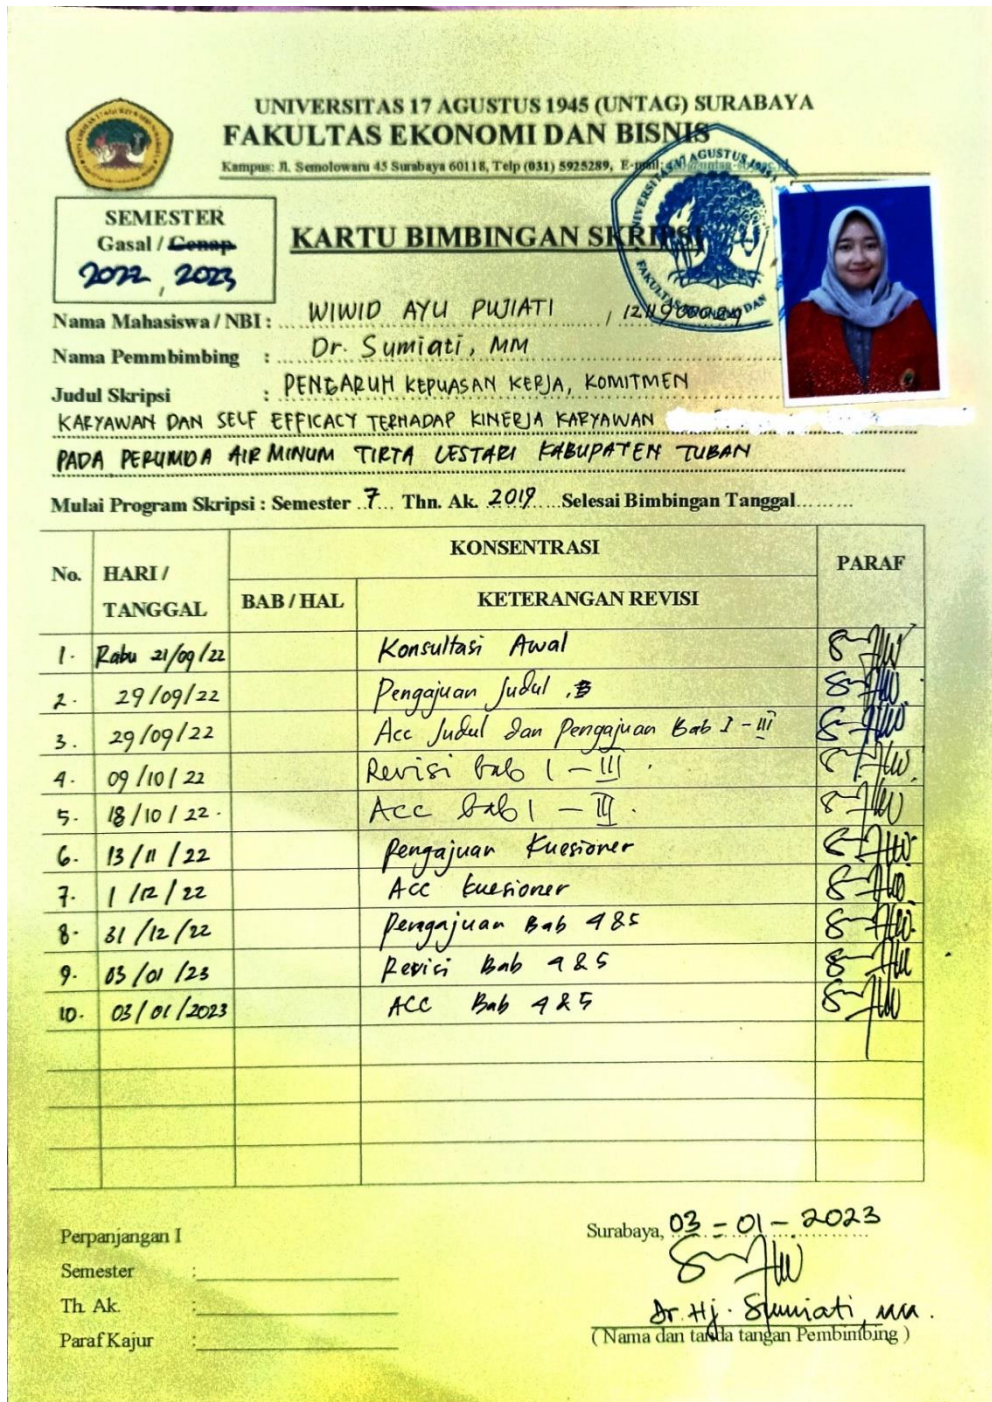 UNIVERSITAS 17 AGUSTUS 1945 (UNTAG) SURABAYA
FAKULTAS EKONOMI DAN BISNIS
Kampus: Jl. Semolowaru 45 Surabaya 60118, Telp (031) 5925289,
SEMESTER
Gasal / Genap
2022, 2023
KARTU BIMBINGAN SKRIPSI
Nama Mahasiswa / NBI : WIWID AYU PUJIATI
Nama Pemmbimbing : Dr. Sumiati, MM
Judul Skripsi : PENGARUH KEPUASAN KERJA, KOMITMEN
KARYAWAN DAN SELF EFFICACY TERHADAP KINERJA KARYAWAN
PADA PERUMDA AIR MINUM TIRTA LESTARI KABUPATEN TUBAN
Mulai Program Skripsi : Semester 7 Thn. Ak. 2019 Selesai Bimbingan Tanggal
No. HARI / TANGGAL KONSENTRASI PARAF
BAB / HAL KETERANGAN REVISI
1. Rabu 21/09/22 Konsultasi Awal
2. 29/09/22 Pengajuan Judul
3. 29/09/22 Acc Judul dan Pengajuan Bab I - III
4. 09/10/22 Revisi bab I - III.
5. 18/10/22. Acc bab I - III.
6. 13/11/22 Pengajuan Kuesioner
7. 1/12/22 Acc kuesioner
8. 31/12/22 Pengajuan Bab 4 & 5
9. 03/01/23 Revisi Bab 4 & 5
10. 03/01/2023 ACC Bab 4 & 5
Perpanjangan I
Semester :
Th. Ak. :
Paraf Kajur :
Surabaya, 03 - 01 - 2023
Dr. Hj. Sumiati, MM.
( Nama dan tanda tangan Pembimbing )